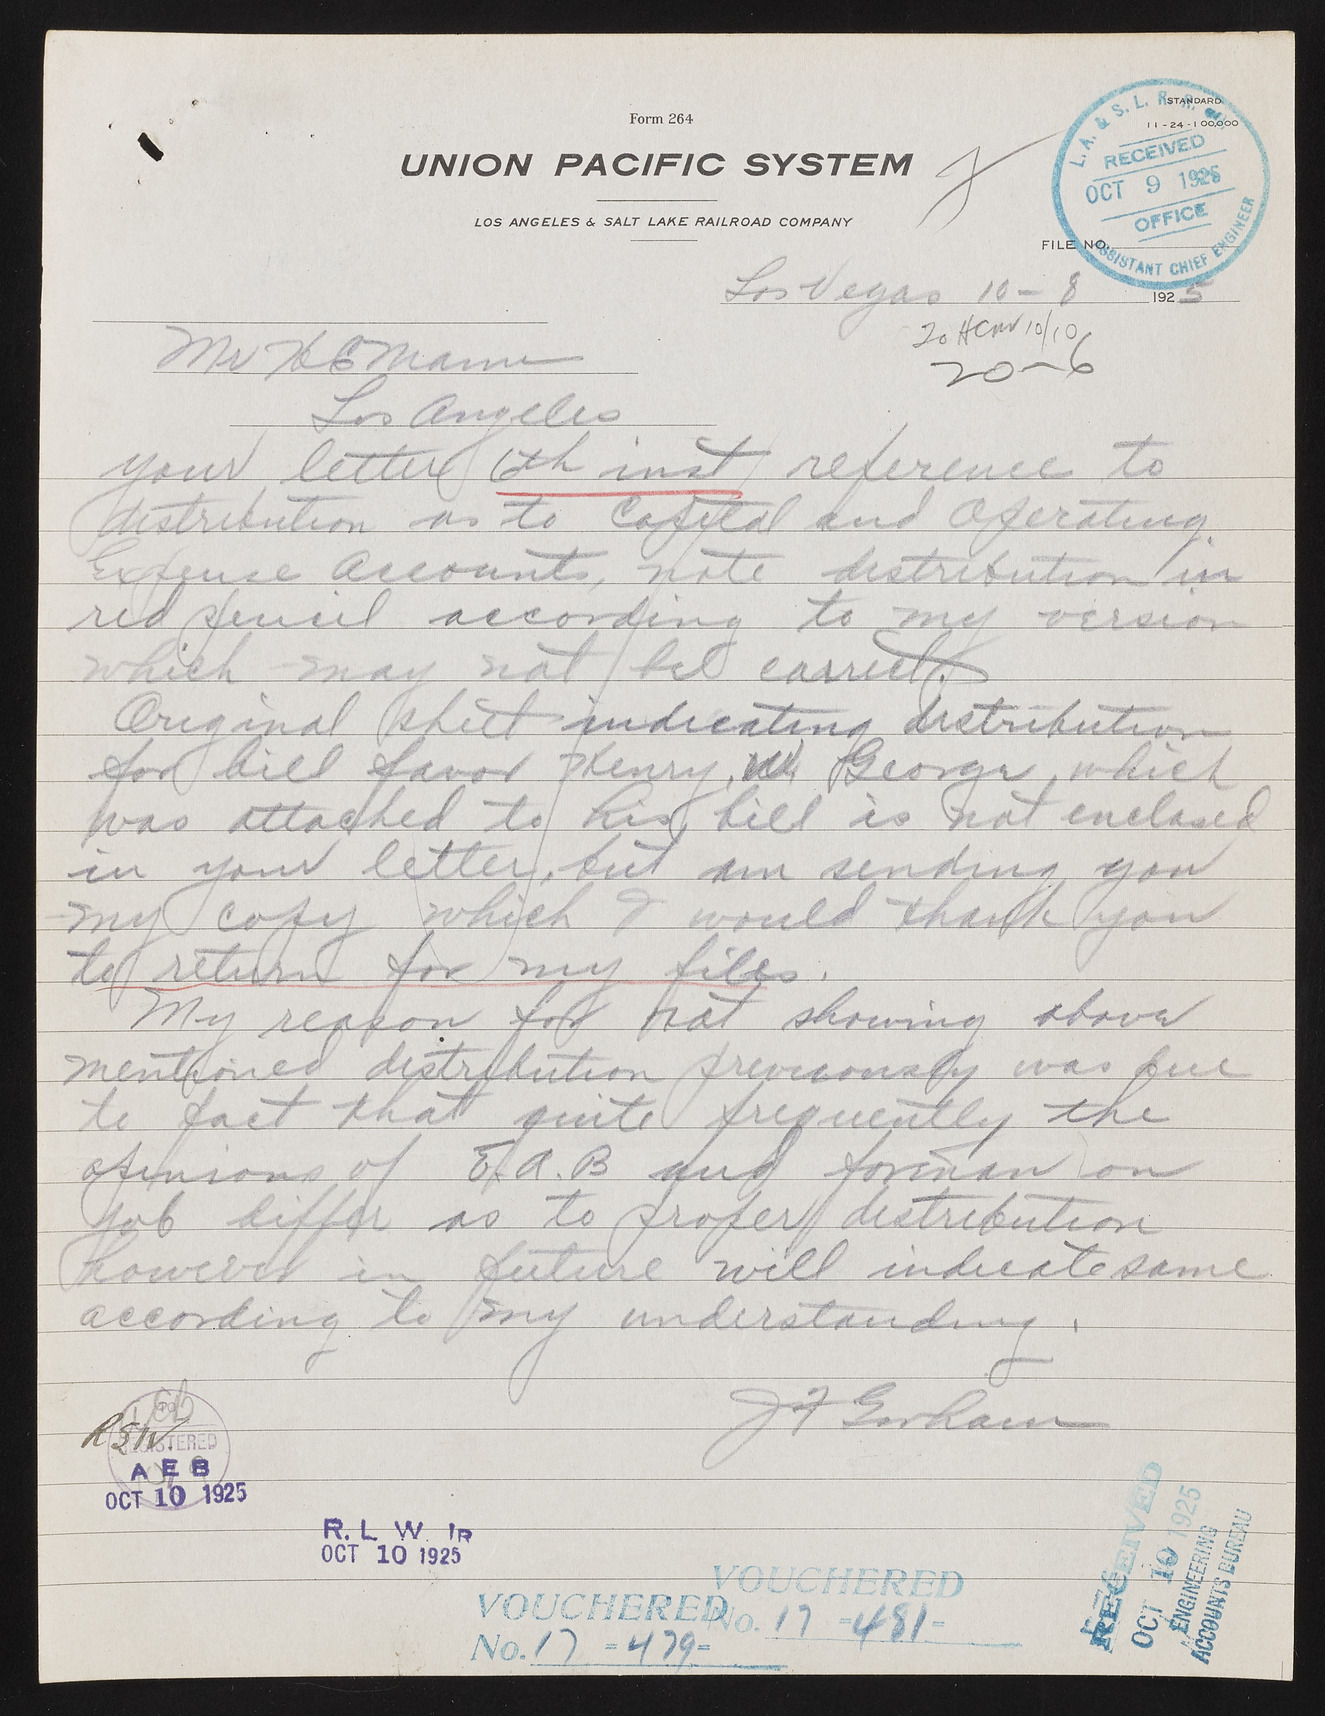 Form 264
STANDARD
11-24-100,000
UNION PACIFIC SYSTEM
LOS ANGELES & SALT LAKE RAILROAD COMPANY
L. A. & S. L. R. R. Co.
RECEIVED
OCT 9 1925
OFFICE
ASSISTANT CHIEF ENGINEER
FILE NO.
Las Vegas 10-8 1925
10/10
20-6
Mr H C Mann
Los Angeles
your letter 6th inst reference to
distribution as to Capital and Operating
Expense Accounts, note distribution in
red pencil according to my version
which may not be correct.
Original sheet indicating distribution
for bill favor Henry, W George, which
was attached to his bill is not enclosed
in your letter, but am sending you
my copy which I would thank you
to return for my files.
My reason for not showing above
mentioned distribution previously was due
to fact that quite frequently the
opinions of E.A.B and forman on
job differ as to proper distribution
however in future will indicate same
according to my understanding.
J F Gorham
REGISTERED
A E B
OCT 10 1925
R. L. W. JR
OCT 10 1925
VOUCHERED
No. 17 -479-
VOUCHERED
No. 17 -481-
RECEIVED
OCT 10 1925
ENGINEERING
ACCOUNTS BUREAU